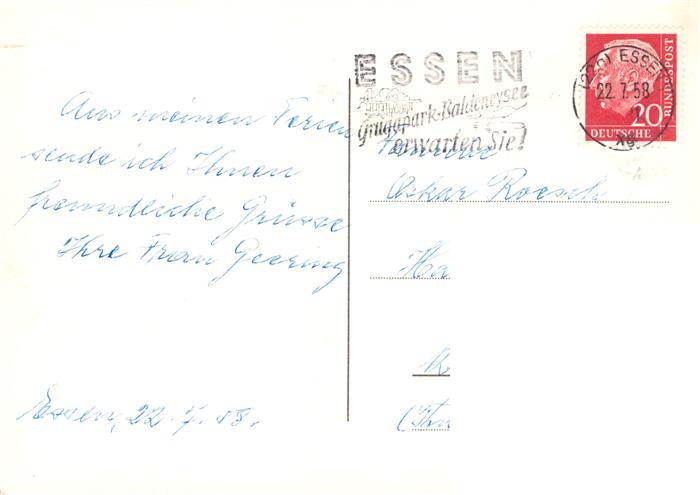 Aus meinen Ferien
sende ich Ihnen
freundliche Grüsse
Ihre Frau Geering
Essen, 22. 7. 58.
ESSEN
Grugapark-Baldeneysee
erwarten Sie!
ESSEN
22.7.58
20
DEUTSCHE
BUNDESPOST
Familie
Oskar Roesch
Ha